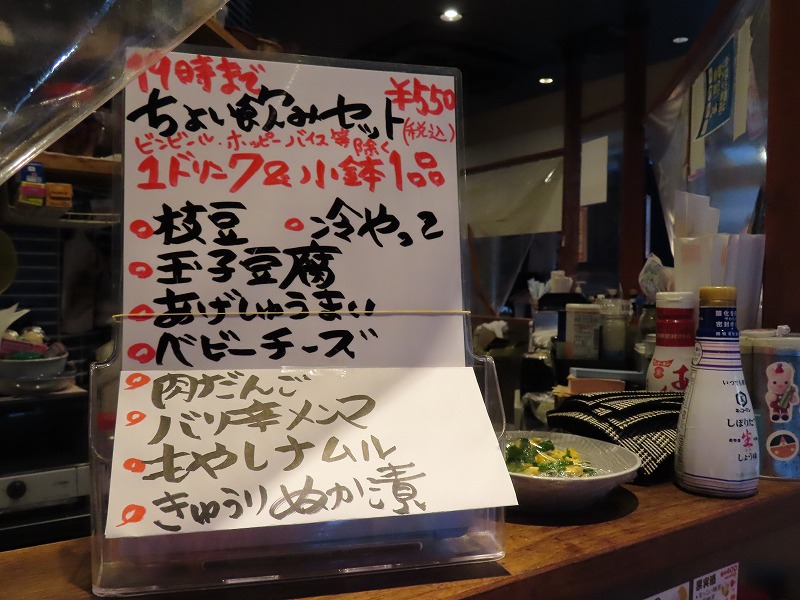 19時まで
ちょい飲みセット ¥550
(税込)
ビンビール・ホッピーバイス等除く
1ドリンク&小鉢1品
枝豆 冷やっこ
玉子豆腐
あげしゅうまい
ベビーチーズ
肉だんご
バリ辛メンマ
もやしナムル
きゅうりぬか漬
いつでも新鮮
しぼりたて
生
しょうゆ